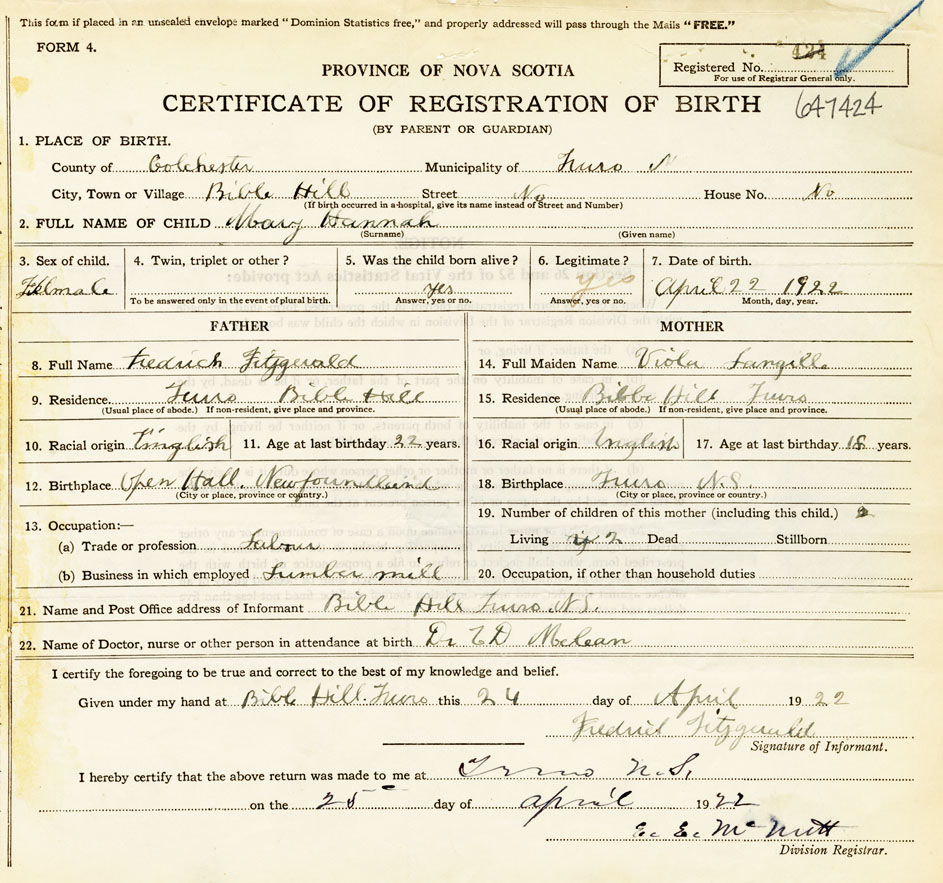 This form if placed in an unsealed envelope marked "Dominion Statistics free," and properly addressed will pass through the Mails "FREE."
FORM 4.
Registered No. 424
For use of Registrar General only.
PROVINCE OF NOVA SCOTIA
CERTIFICATE OF REGISTRATION OF BIRTH 647424
(BY PARENT OR GUARDIAN)
1. PLACE OF BIRTH.
County of Colchester Municipality of Truro
City, Town or Village Bible Hill Street No House No. No
(If birth occurred in a hospital, give its name instead of Street and Number)
2. FULL NAME OF CHILD Mary Hannah
(Surname) (Given name)
3. Sex of child. 4. Twin, triplet or other? 5. Was the child born alive? 6. Legitimate? 7. Date of birth.
Female yes yes April 22 1922
To be answered only in the event of plural birth. Answer, yes or no. Answer, yes or no. Month, day, year.
FATHER MOTHER
8. Full Name Fredrich Fitzgerald 14. Full Maiden Name Viola Langill
9. Residence Truro Bible Hill 15. Residence Bibbe Hill Truro
(Usual place of abode.) If non-resident, give place and province. (Usual place of abode.) If non-resident, give place and province.
10. Racial origin English 11. Age at last birthday 22 years. 16. Racial origin Inglish 17. Age at last birthday 18 years.
12. Birthplace Open Hall. Newfoundland 18. Birthplace Truro N.S.
(City or place, province or country.) (City or place, province or country.)
13. Occupation:— 19. Number of children of this mother (including this child.) 2
(a) Trade or profession Labour Living 2 Dead Stillborn
(b) Business in which employed Lumber mill 20. Occupation, if other than household duties
21. Name and Post Office address of Informant Bible Hill Truro N.S.
22. Name of Doctor, nurse or other person in attendance at birth Dr E D McLean
I certify the foregoing to be true and correct to the best of my knowledge and belief.
Given under my hand at Bible Hill. Truro this 24 day of April 1922
Fredrich Fitzgerald
Signature of Informant.
I hereby certify that the above return was made to me at Truro N.S.
on the 25 day of April 1922
E. E. McNutt
Division Registrar.